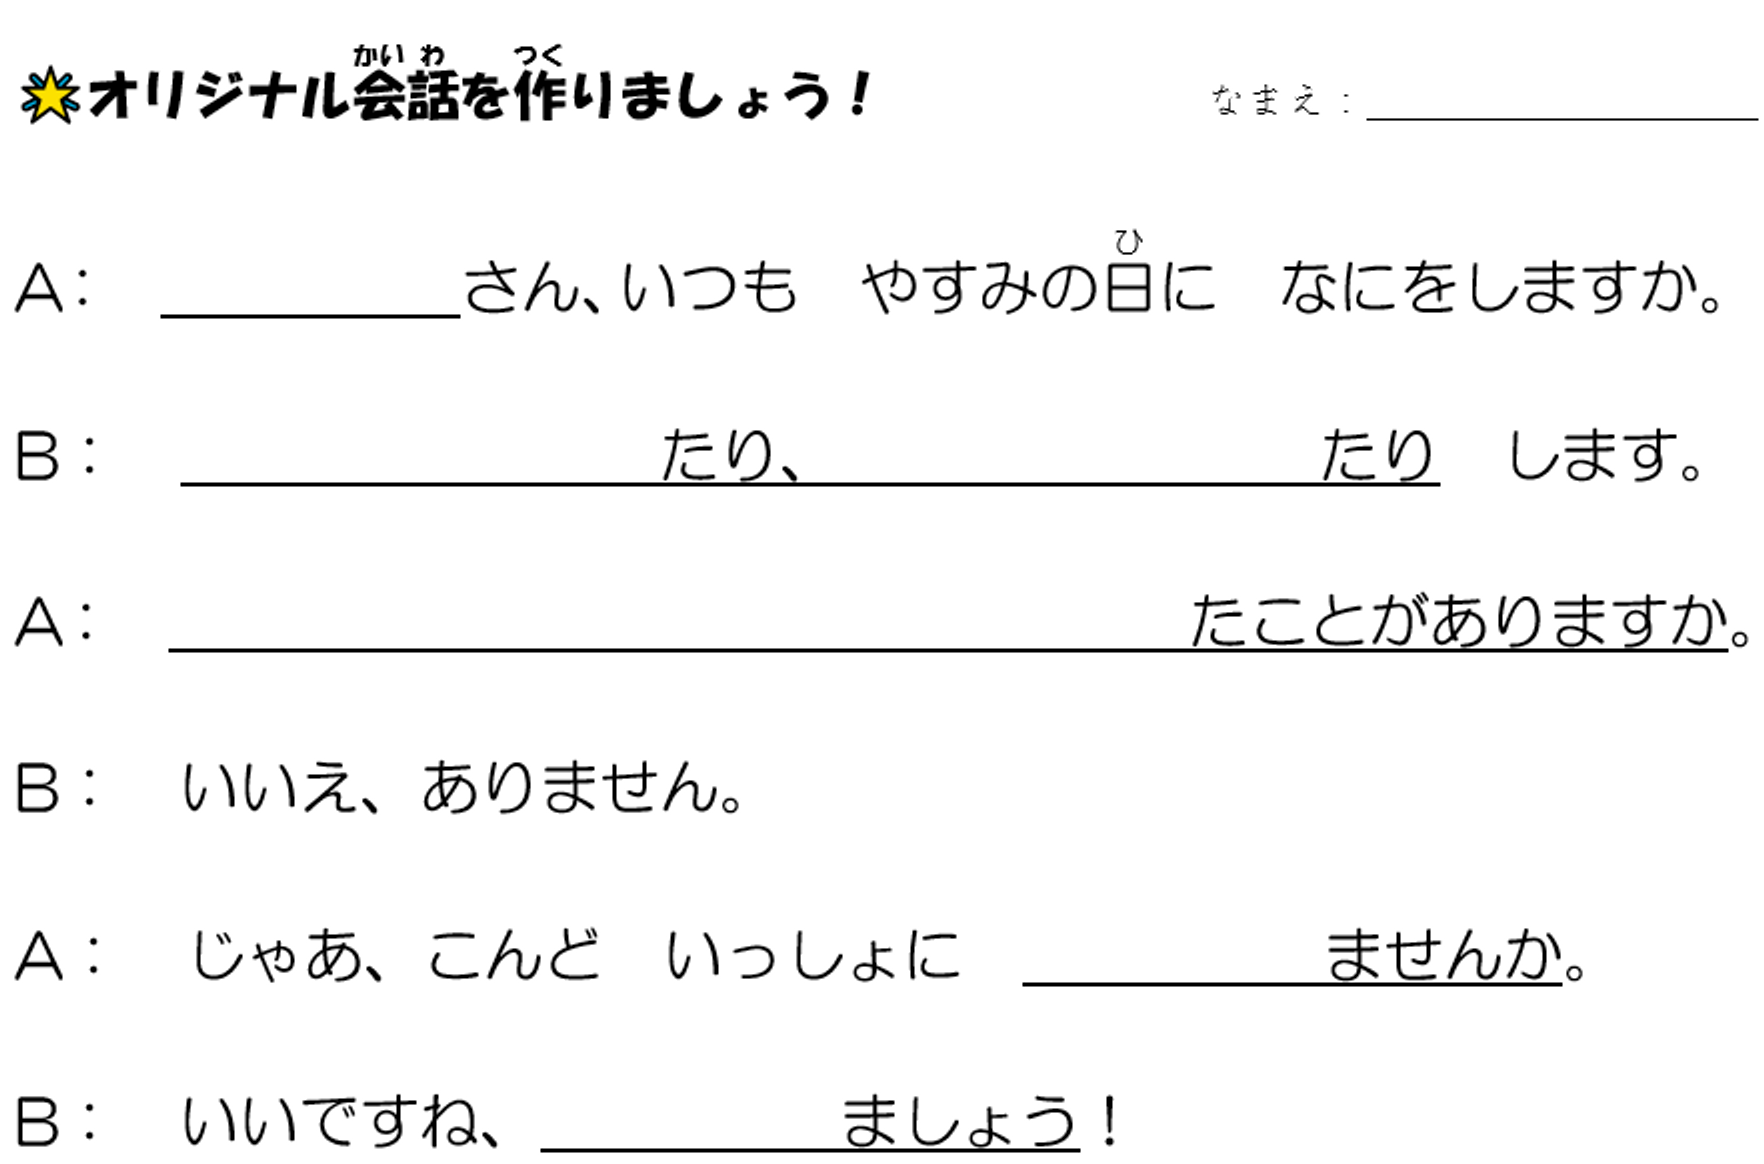 オリジナル会話を作りましょう！ なまえ：
A： さん、いつも　やすみの日に　なにをしますか。
B： たり、 たり　します。
A： たことがありますか。
B： いいえ、ありません。
A： じゃあ、こんど　いっしょに ませんか。
B： いいですね、 ましょう！